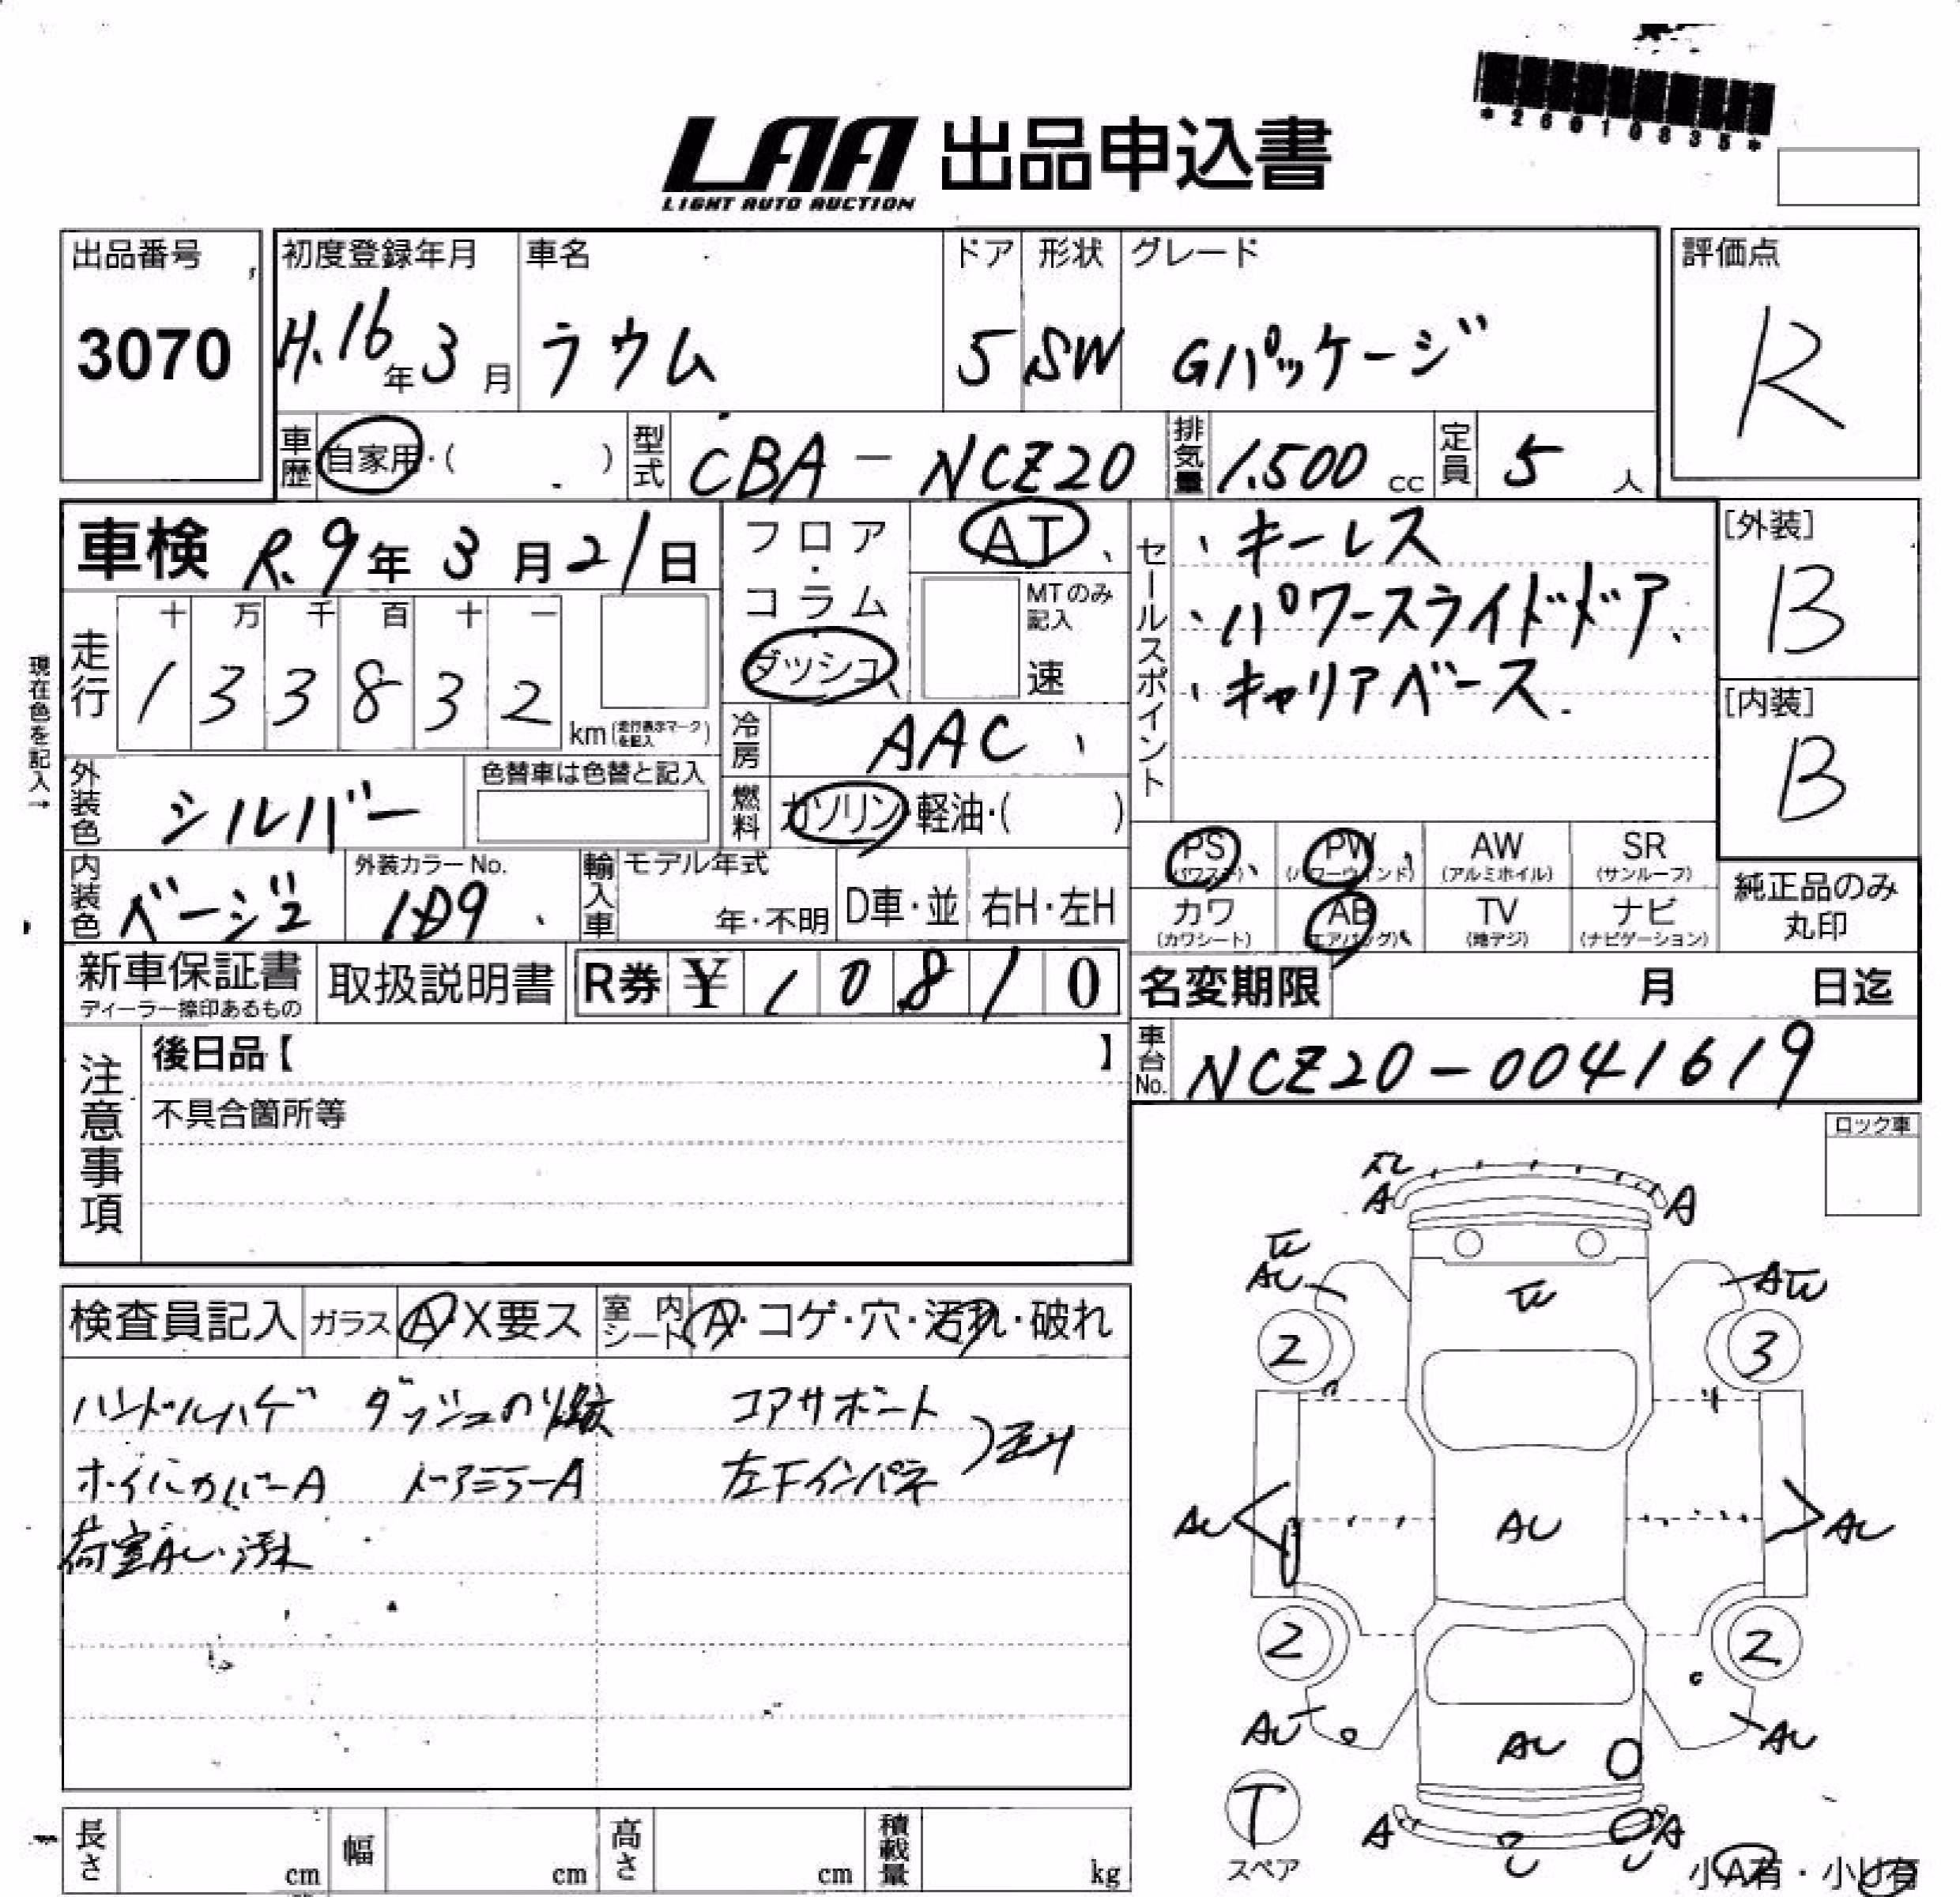 *26010835*
LAA 出品申込書
LIGHT AUTO AUCTION
出品番号 初度登録年月 車名 ドア 形状 グレード 評価点
3070 H.16年3月 ラウム 5 SW Gパッケージ R
車歴 自家用・( ) 型式 CBA-NCZ20 排気量 1.500 cc 定員 5 人
車検 R.9年3月21日
フロア・コラム ダッシュ AT
MTのみ記入 速
セールスポイント
・キーレス
・パワースライドドア、
・キャリアベース.
[外装] B
[内装] B
現在色を記入→
走行 十 万 千 百 十 一
1 3 3 8 3 2 km (走行表示マークを記入)
冷房 AAC
外装色 シルバー 色替車は色替と記入
燃料 ガソリン・軽油・( )
内装色 ベージュ 外装カラーNo. 1D9
輸入車 モデル年式 年・不明 D車・並 右H・左H
PS (パワステ) PW (パワーウィンド) AW (アルミホイル) SR (サンルーフ)
カワ (カワシート) AB (エアバッグ) TV (地デジ) ナビ (ナビゲーション)
純正品のみ丸印
新車保証書 ディーラー捺印あるもの 取扱説明書 R券 ¥ 1 0 8 1 0
名変期限 月 日迄
車台No. NCZ20-0041619
注意事項
後日品【 】
不具合箇所等
ロック車
検査員記入 ガラス A・X要ス 室内シート A・コゲ・穴・汚れ・破れ
ハンドルハゲ ダッシュのり跡 コアサポート
ホイルカバーA ドアミラーA 左下インパネ
荷室AU・汚れ
A A
AU A
2 3
AU AU AU
2 2
AU AU AU
T
スペア
A A
小A有・小U有
長さ cm 幅 cm 高さ cm 積載量 kg